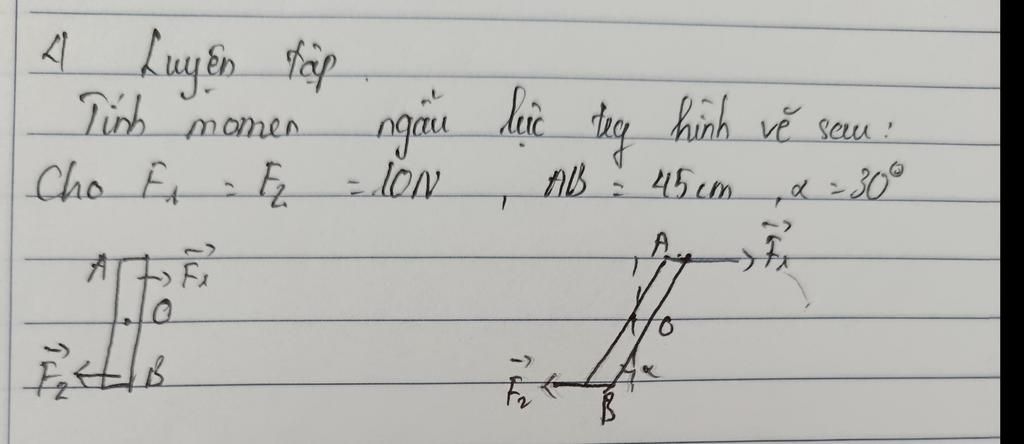 4 Luyện tập.
Tính momen ngẫu lực tṛg hình vẽ sau:
Cho F₁ = F₂ = 10N, AB = 45cm, α = 30°
A F₁ A F₁
O O
F₂ B F₂ B α